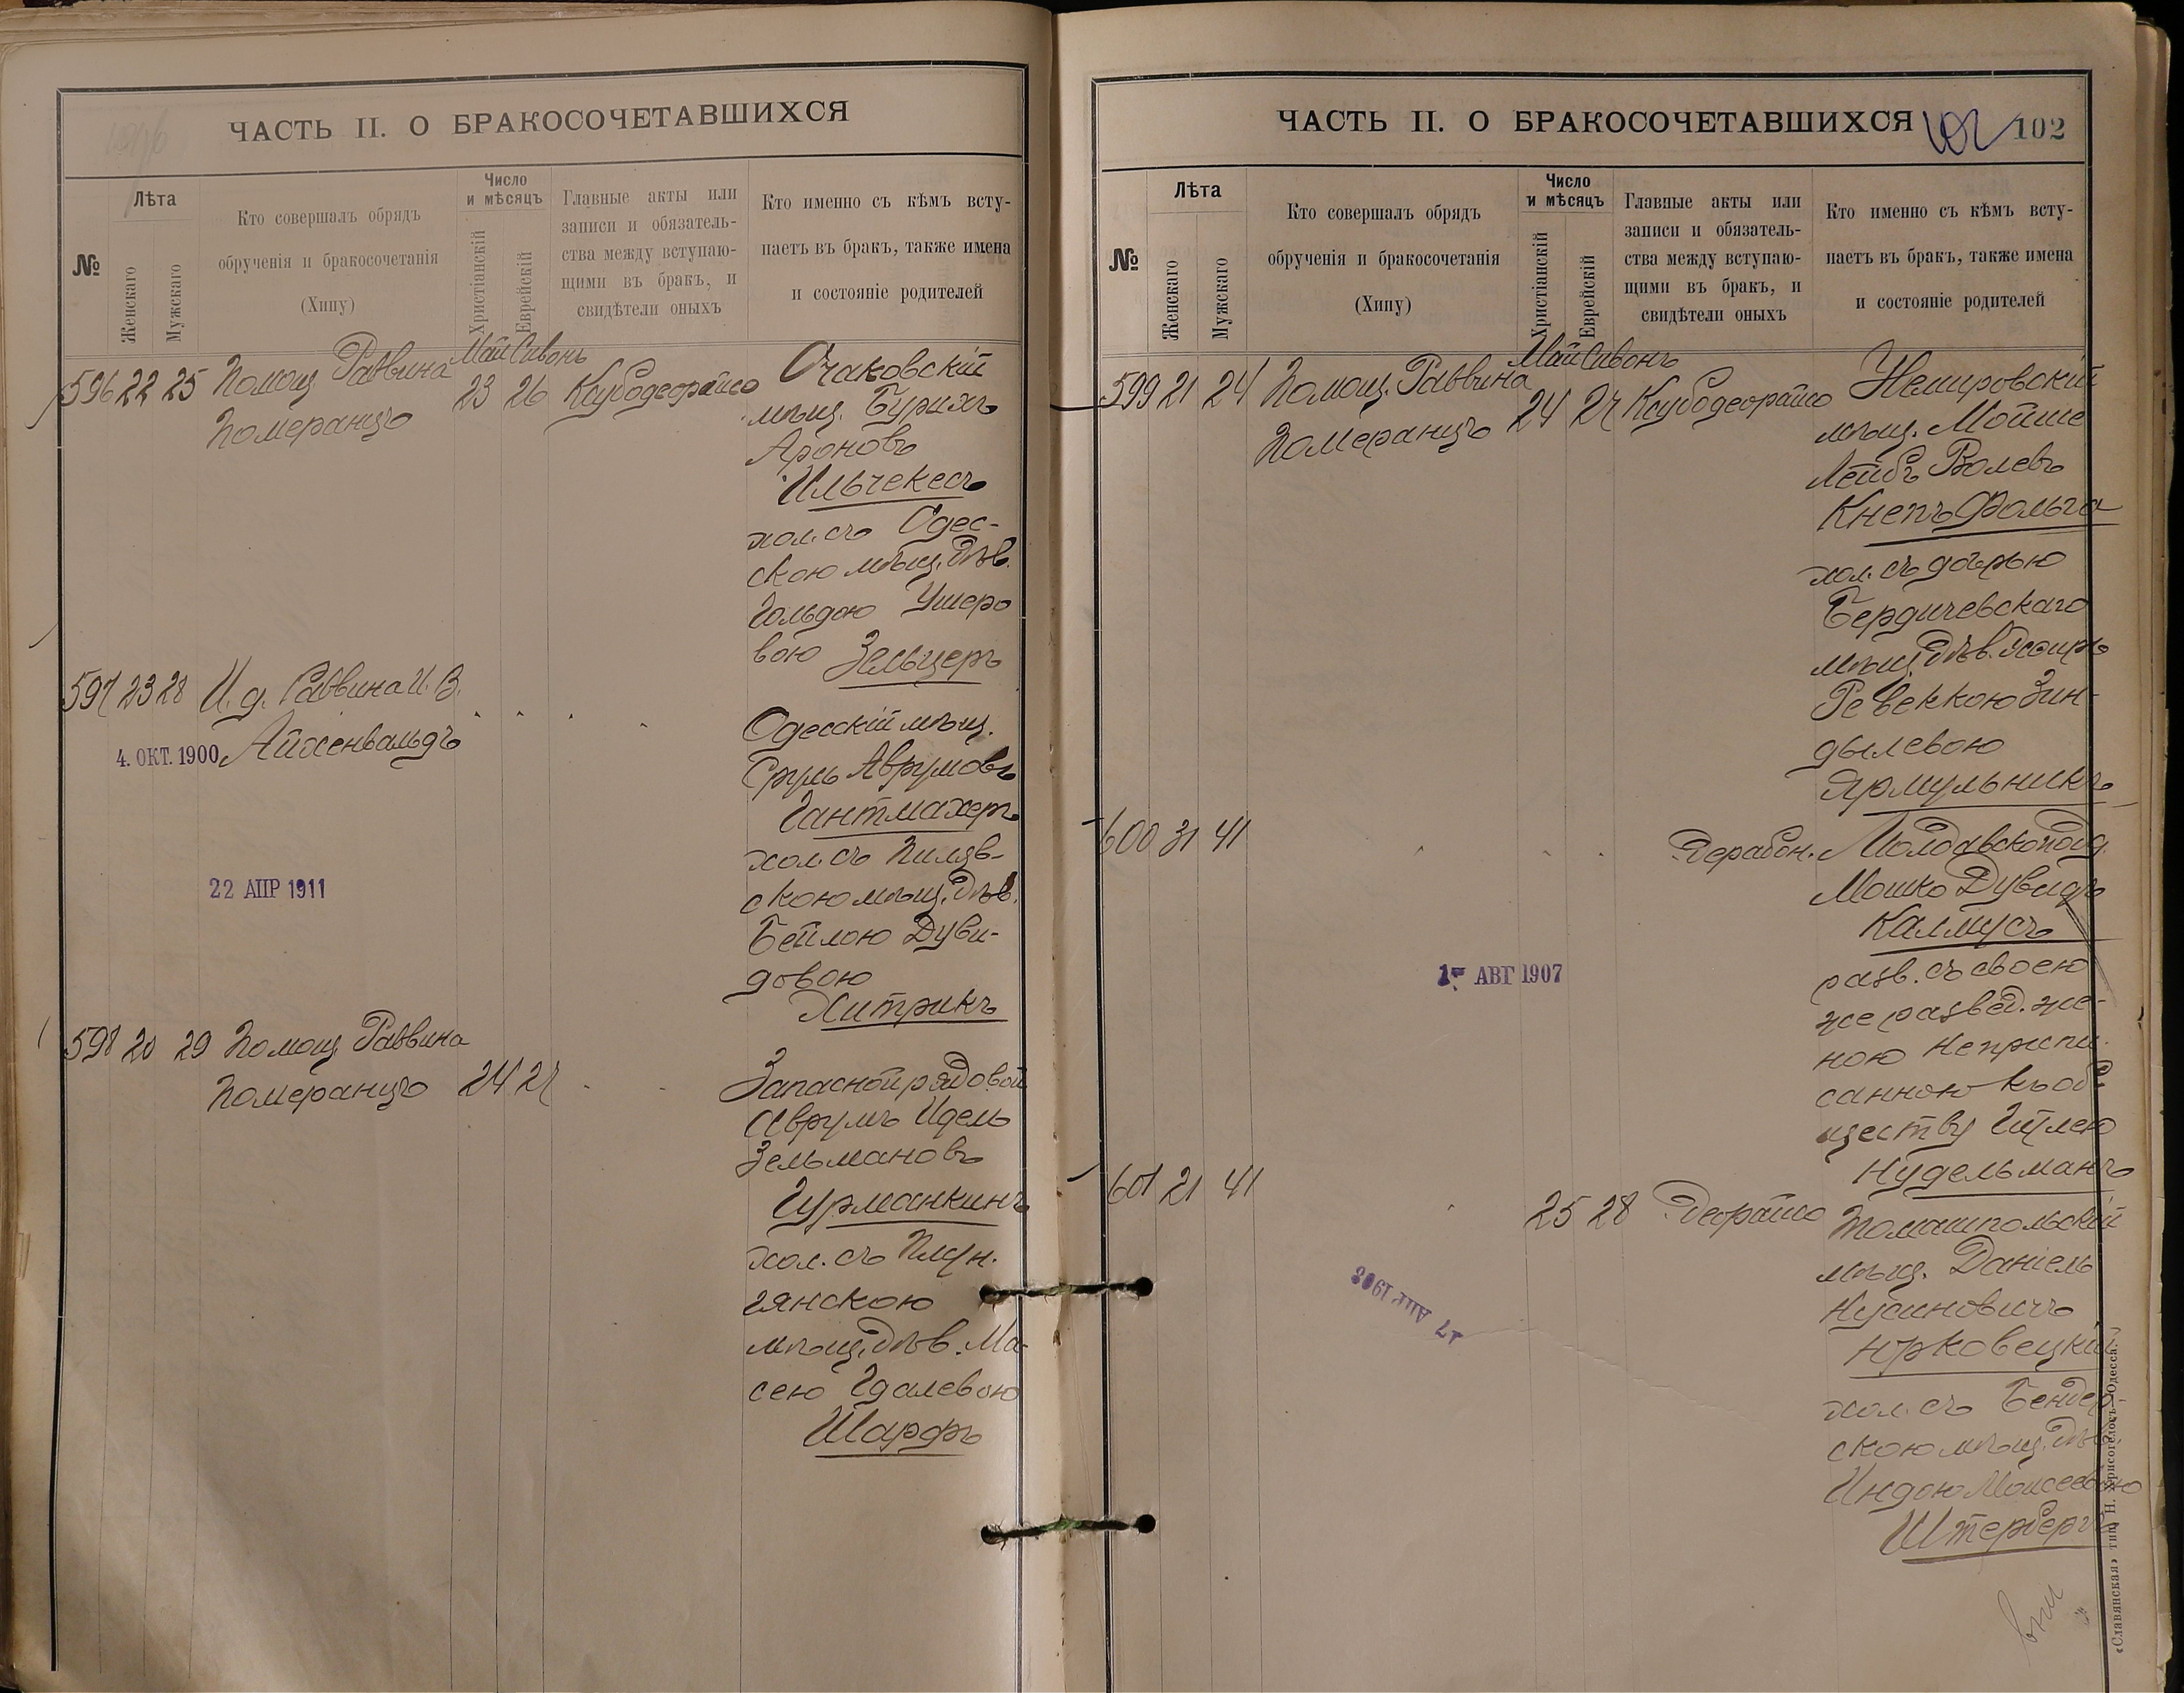 ЧАСТЬ II. О БРАКОСОЧЕТАВШИХСЯ
№
Лѣта
Женскаго
Мужскаго
Кто совершалъ обрядъ
обрученія и бракосочетанія
(Хипу)
Число
и мѣсяцъ
Христіанскій
Еврейскій
Главные акты или
записи и обязатель-
ства между вступаю-
щими въ бракъ, и
свидѣтели оныхъ
Кто именно съ кѣмъ всту-
паетъ въ бракъ, также имена
и состояніе родителей
Май Сивонъ
596 22 25 Помощ. Раввина
Померанцъ
23 26 Ксубодеорайсо
Очаковскій
мѣщ. Бурихъ
Ароновъ
Ильчекесъ
хол. съ Одес-
скою мѣщ. дѣв.
Гольдою Ушеро
вою Зельцеръ
597 23 28 И. д. Раввина И. В.
Айхенвальдъ
4. ОКТ. 1900
22 АПР 1911
Одесскій мѣщ.
Сруль Аврумовъ
Гантмахеръ
хол. съ Пиляв-
скою мѣщ. дѣв.
Бейлою Дуви-
довою
Хитрикъ
598 20 29 Помощ. Раввина
Померанцъ
24 27
Запасной рядовой
Аврумъ Идель
Зельмановъ
Гурманкинъ
хол. съ Плун-
гянскою
мѣщ. дѣв. Ма-
сею Гдалевою
Шарфъ
ЧАСТЬ II. О БРАКОСОЧЕТАВШИХСЯ
102
102
№
Лѣта
Женскаго
Мужскаго
Кто совершалъ обрядъ
обрученія и бракосочетанія
(Хипу)
Число
и мѣсяцъ
Христіанскій
Еврейскій
Главные акты или
записи и обязатель-
ства между вступаю-
щими въ бракъ, и
свидѣтели оныхъ
Кто именно съ кѣмъ всту-
паетъ въ бракъ, также имена
и состояніе родителей
Май Сивонъ
599 21 24 Помощ. Раввина
Померанцъ
24 27 Ксубодеорайсо
Немировскій
мѣщ. Мойше
Лейбъ Волевъ
Кнепъ Фольга
хол. съ дочерью
Бердичевскаго
мѣщ. дѣв.
Ревеккою Зин-
дылевою
Ярмульникъ
600 31 41
Дерабон.
Молдавскоподд.
Мошко Дувидъ
Калмусъ
разв. съ своею
же развед. же-
ною неприпи-
санною къ об-
ществу Гитлею
Нудельманъ
1 АВГ 1907
601 21 41
25 28 Деорайсо
Томашпольскій
мѣщ. Даніель
Нусиновичъ
Юрковецкій
хол. съ Бендер-
скою мѣщ. дѣв.
Индою Моисеевою
Штерберъ
27 АПР 1908
«Славянская» тип. Н. Хрисогелосъ Одесса.